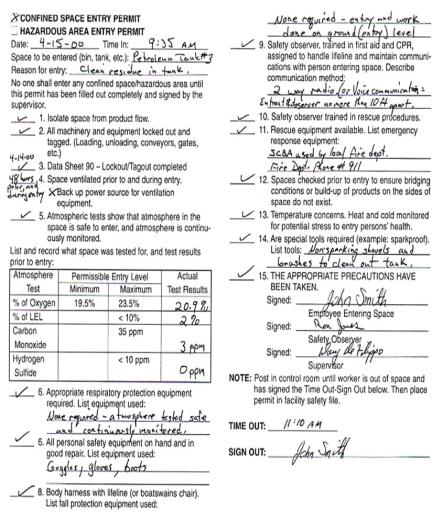 X CONFINED SPACE ENTRY PERMIT
HAZARDOUS AREA ENTRY PERMIT
Date: 4-15-00 Time In: 9:35 AM
Space to be entered (bin, tank, etc.): Petroleum Tank #3
Reason for entry: Clean residue in tank.
No one shall enter any confined space/hazardous area until
this permit has been filled out completely and signed by the
supervisor.
✓ 1. Isolate space from product flow.
✓ 2. All machinery and equipment locked out and
tagged. (Loading, unloading, conveyors, gates,
etc.)
4-14-00
✓ 3. Data Sheet 90 – Lockout/Tagout completed
48 hours prior, and during entry 4. Space ventilated prior to and during entry.
X Back up power source for ventilation
equipment.
✓ 5. Atmospheric tests show that atmosphere in the
space is safe to enter, and atmosphere is continu-
ously monitored.
List and record what space was tested for, and test results
prior to entry:
Atmosphere Test Permissible Entry Level Minimum Maximum Actual Test Results
% of Oxygen 19.5% 23.5% 20.9%
% of LEL < 10% 2%
Carbon Monoxide 35 ppm 3 ppm
Hydrogen Sulfide < 10 ppm 0 ppm
✓ 6. Appropriate respiratory protection equipment
required. List equipment used:
None required - atmosphere tested safe
and continuously monitored.
✓ 6. All personal safety equipment on hand and in
good repair. List equipment used:
Goggles, gloves, boots
✓ 8. Body harness with lifeline (or boatswains chair).
List fall protection equipment used:
None required - entry and work
done on ground (entry) level
✓ 9. Safety observer, trained in first aid and CPR,
assigned to handle lifeline and maintain communi-
cations with person entering space. Describe
communication method:
2 way radio (or Voice communication =
Entrant & observer no more than 10 ft apart.
✓ 10. Safety observer trained in rescue procedures.
✓ 11. Rescue equipment available. List emergency
response equipment:
SCBA used by local fire dept.
Fire Dept. Phone # 911
✓ 12. Spaces checked prior to entry to ensure bridging
conditions or build-up of products on the sides of
space do not exist.
✓ 13. Temperature concerns. Heat and cold monitored
for potential stress to entry persons' health.
✓ 14. Are special tools required (example: sparkproof).
List tools: Nonsparking shovels and
brushes to clean out tank.
✓ 15. THE APPROPRIATE PRECAUTIONS HAVE
BEEN TAKEN.
Signed: John Smith
Employee Entering Space
Signed: Ron Jones
Safety Observer
Signed:
Supervisor
NOTE: Post in control room until worker is out of space and
has signed the Time Out-Sign Out below. Then place
permit in facility safety file.
TIME OUT: 11:10 AM
SIGN OUT: John Smith